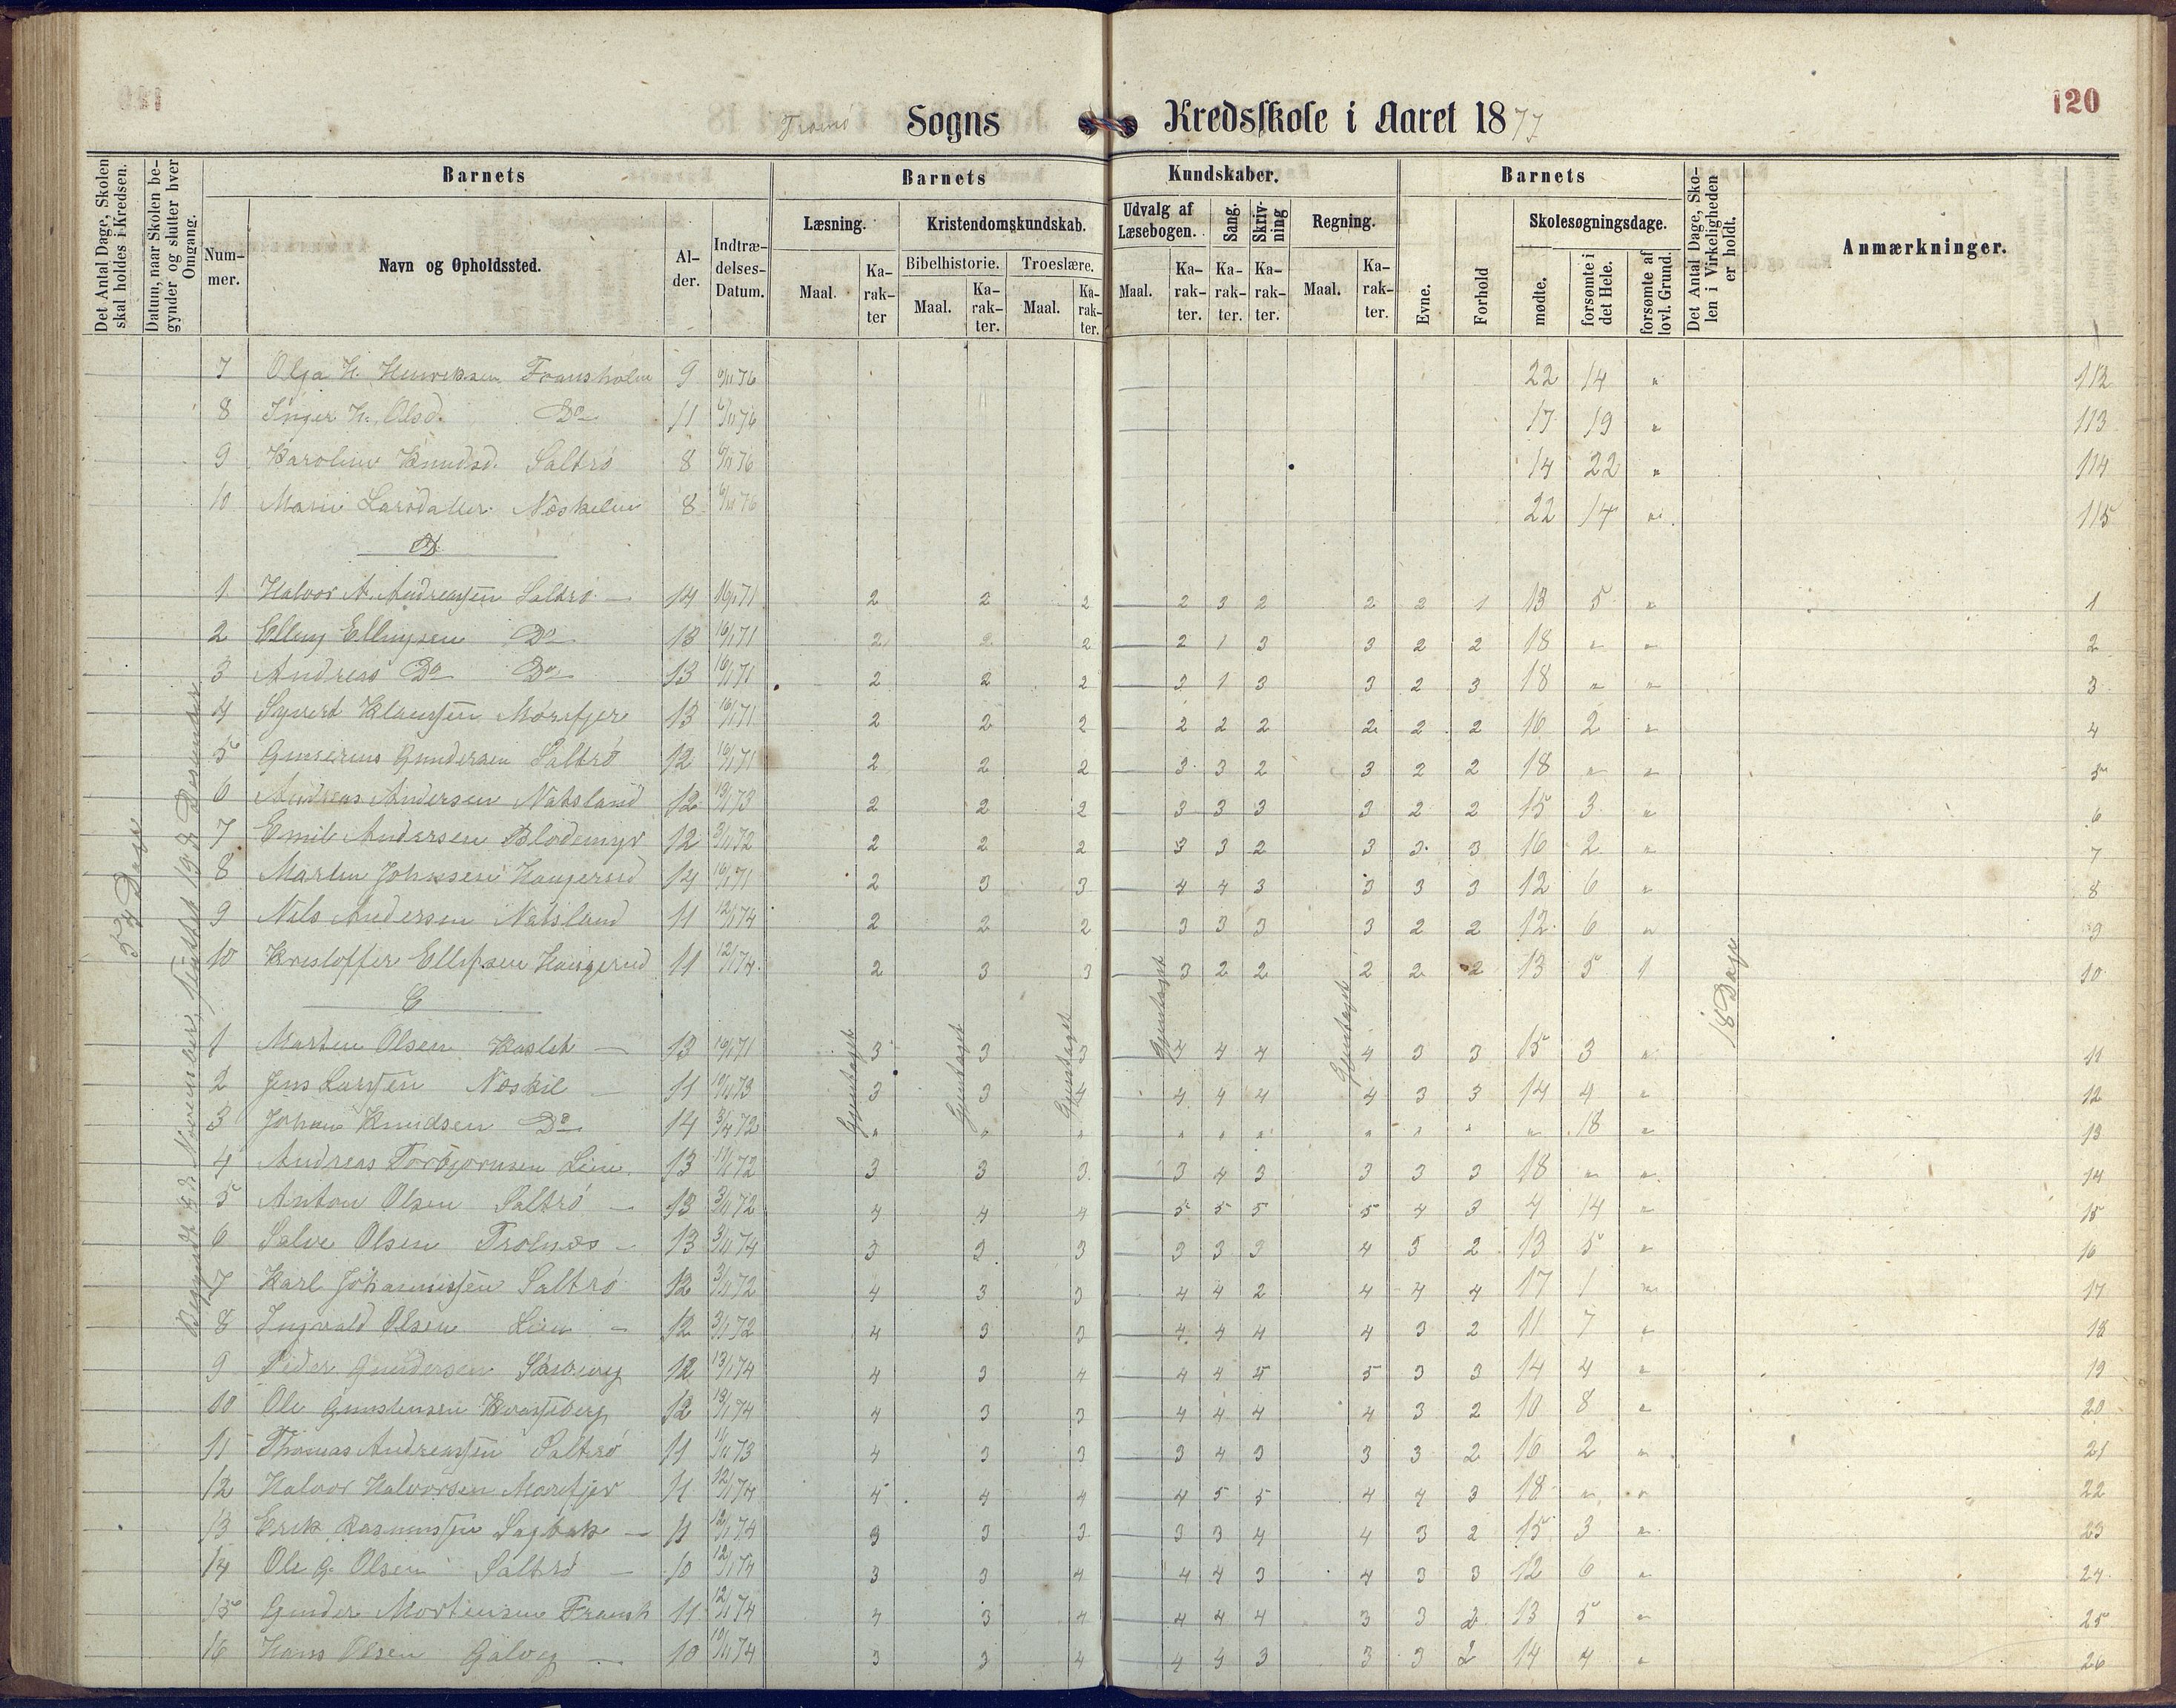 120
Tromö Sogns Kredsskole i Aaret 1877
Det Antal Dage, Skolen skal holdes i Kredsen.
Datum, naar Skolen begynder og slutter hver Omgang.
Barnets
Barnets
Kundskaber.
Barnets
Nummer.
Navn og Opholdssted.
Alder.
Indtrædelses-Datum.
Læsning.
Kristendomskundskab.
Bibelhistorie.
Troeslære.
Maal.
Karakter
Maal.
Karakter.
Maal.
Karakter.
Udvalg af Læsebogen.
Sang.
Skrivning
Regning.
Maal.
Karakter.
Karakter.
Karakter.
Maal.
Karakter.
Evne.
Forhold
Skolesøgningsdage.
mødte.
forsømte i det Hele.
forsømte af lovl. Grund.
Det Antal Dage, Skolen i Virkeligheden er holdt.
Anmærkninger.
7 Olga H. Henriksen Fransholm 9 6/11 76 22 14 " 112
8 Inger H. Olsd. Do 11 6/11 76 17 19 " 113
9 Karoline Knudsd. Saltrö 8 6/11 76 14 22 " 114
10 Marie Larsdatter Næskilen 8 6/11 76 22 14 " 115
1 Halvor A. Andreassen Saltrö 14 16/1 71 2 2 2 2 3 2 2 2 1 13 5 " 1
2 Elling Ellingsen Do 13 16/1 71 2 2 2 2 1 3 3 2 2 18 " " 2
3 Andreas Do Do 13 16/1 71 2 2 2 2 1 3 3 2 3 18 " " 3
4 Syvert Klausen Morefjer 13 16/1 71 2 2 2 2 2 2 2 2 2 16 2 " 4
5 Gunerius Gundersen Saltrö 12 16/1 71 2 2 2 3 3 2 3 2 2 18 " " 5
6 Andreas Andersen Natsland 12 13/1 73 2 2 2 3 3 3 3 2 2 15 3 " 6
7 Emil Andersen Blodemyr 12 3/11 72 2 2 2 3 3 2 3 3 3 16 2 " 7
8 Martin Johnsen Haugerud 14 16/1 71 2 3 3 4 4 3 3 3 3 12 6 " 8
9 Nils Andersen Natsland 11 12/1 74 2 2 2 3 3 3 3 2 2 12 6 " 9
10 Kristoffer Ellefsen Haugerud 11 12/1 74 2 3 3 3 2 2 2 2 2 13 5 1 10
C
1 Martin Olsen Haslet 13 16/1 71 3 3 3 4 4 4 4 3 3 15 3 " 11
2 Jens Larsen Næskil 11 10/11 73 3 3 4 4 4 4 4 3 3 14 4 " 12
3 Johan Knudsen Do 14 3/4 72 " " " " " " " " " " 18 " 13
4 Andreas Torbjörnsen Lien 13 11/1 72 3 3 3 3 4 3 3 3 3 18 " " 14
5 Anton Olsen Saltrö 13 3/11 72 4 4 4 5 5 5 5 4 3 4 14 " 15
6 Salve Olsen Trolnæs 13 3/11 74 3 3 3 3 3 3 4 3 2 13 5 " 16
7 Karl Johannessen Saltrö 12 3/11 72 4 3 3 4 4 2 4 4 4 17 1 " 17
8 Ingvald Olsen Lien 12 3/11 72 4 3 3 4 4 4 4 3 2 11 7 " 18
9 Peder Gundersen 12 13/1 74 4 3 4 4 4 5 5 3 3 14 4 " 19
10 Ole Gunstensen 12 13/1 74 4 3 3 4 4 4 4 3 2 10 8 " 20
11 Thomas Andreassen Saltrö 11 11/11 73 4 3 3 3 4 3 3 3 2 16 2 " 21
12 Halvor Halvorsen Morefjer 11 12/1 74 4 4 4 4 5 5 4 4 3 18 " " 22
13 Erik Rasmussen Sagbak 11 12/1 74 3 3 3 3 3 4 4 3 2 15 3 " 23
14 Ole G. Olsen Saltrö 10 12/1 74 3 3 4 4 4 3 4 3 3 12 6 " 24
15 Gunder Mortensen Fransh 11 12/1 74 4 3 4 4 4 4 3 3 2 13 5 " 25
16 Hans Olsen Galveg 10 10/11 74 3 3 4 4 4 3 3 3 2 14 4 " 26
54 Dage
Begyndte November, sluttet 19de Desember
Gjentaget
Gjentaget
Gjentaget
Gjentaget
Gjentaget
18 Dage